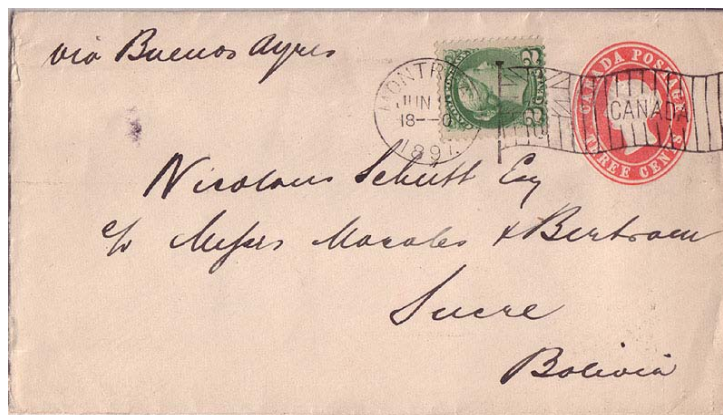 via Buenos Ayres
MONTR
JUN
18—0
1897
CANADA
CANADA POSTAGE
THREE CENTS
Nicolaus Schutt Esq
c/o Messrs Morales & Bertram
Sucre
Bolivia